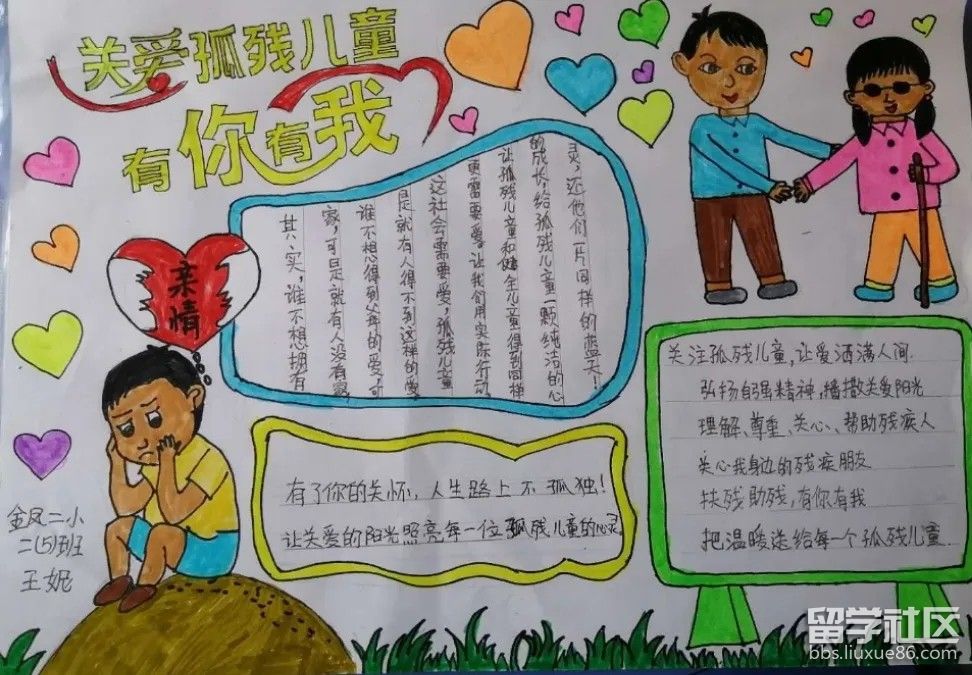 关爱孤残儿童
有你有我
其实，谁不想拥有
家，可是就有人没有家
谁不想得到父母的爱，可
是就有人得不到这样的爱
这社会需要爱，孤残儿童
更需要爱。让我们用实际行动
让孤残儿童和健全儿童得到同样
的成长，给孤残儿童一颗纯洁的心
灵，还他们一片同样的蓝天！
亲情
有了你的关怀，人生路上不孤独！
让关爱的阳光照亮每一位孤残儿童的心灵
关注孤残儿童，让爱洒满人间.
弘扬自强精神，播撒关爱阳光
理解、尊重、关心、帮助残疾人
关心我身边的残疾朋友
扶残助残，有你有我
把温暖送给每一个孤残儿童
金凤二小
二(5)班
王妮
留学社区
bbs.liuxue86.com